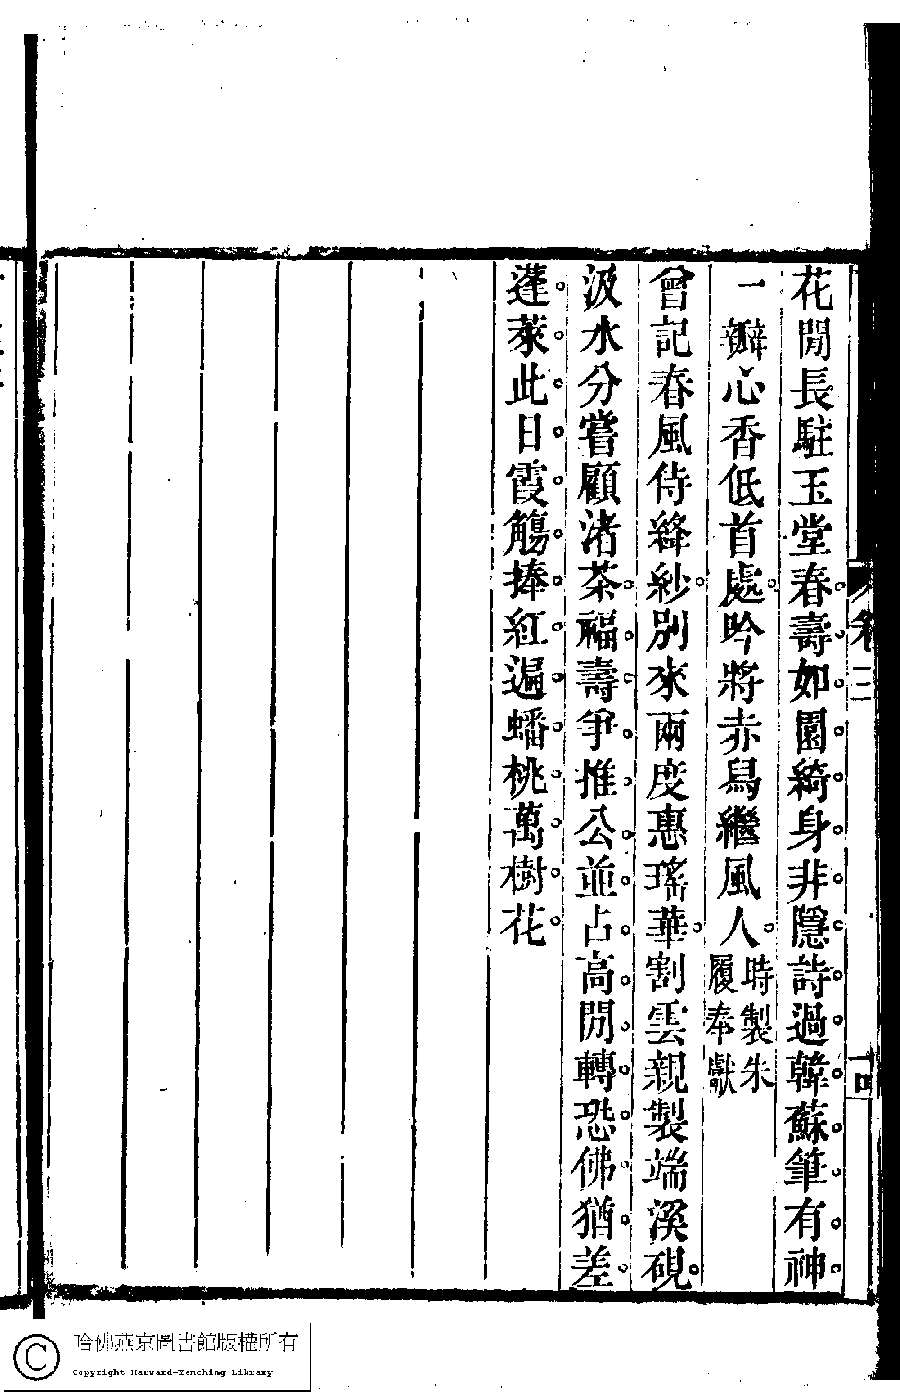 花閒長駐玉堂春壽如園綺身非隱詩過韓蘇筆有神
一瓣心香低首處吟將赤舄繼風人時製朱履奉獻
曾記春風侍絳紗別來兩度惠瑤華割雲親製端溪硯
汲水分嘗顧渚茶福壽爭推公並占高閒轉恐佛猶差
蓬萊此日霞觴捧紅遍蟠桃萬樹花
卷三
十四
哈佛燕京圖書館版權所有
Copyright Harvard-Yenching Library